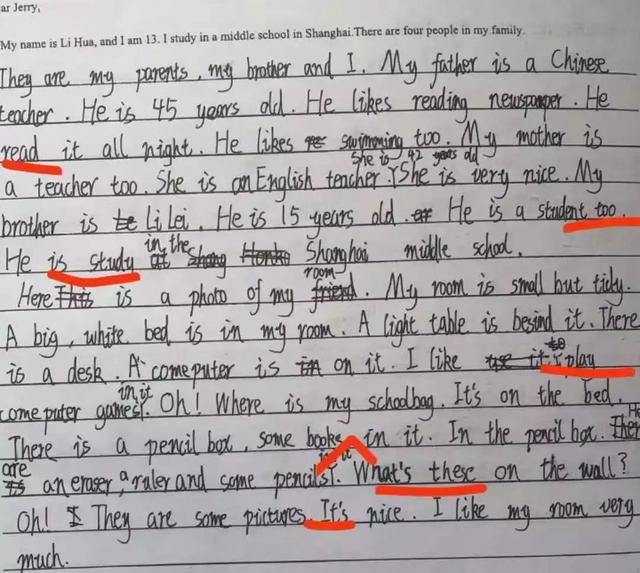 ar Jerry,
My name is Li Hua, and I am 13. I study in a middle school in Shanghai.There are four people in my family.
They are my parents, my brother and I. My father is a Chinese
teacher. He is 45 years old. He likes reading newspamper. He
read it all night. He likes swimming too. My mother is
She is 42 years old
a teacher too. She is an English teacher. She is very nice. My
brother is Li lei. He is 15 years old. He is a student too.
He is study in the Shanghai middle school.
Here is a photo of my room. My room is small but tidy.
A big, white bed is in my room. A light table is besind it. There
is a desk. A comeputer is on it. I like to play
comeputer games in it. Oh! Where is my schoolbag. It's on the bed.
There is a pencil box, some books in it. In the pencil box.
are an eraser, a ruler and some pencils. What's these on the wall?
Oh! They are some pictures. It's nice. I like my room very
much.